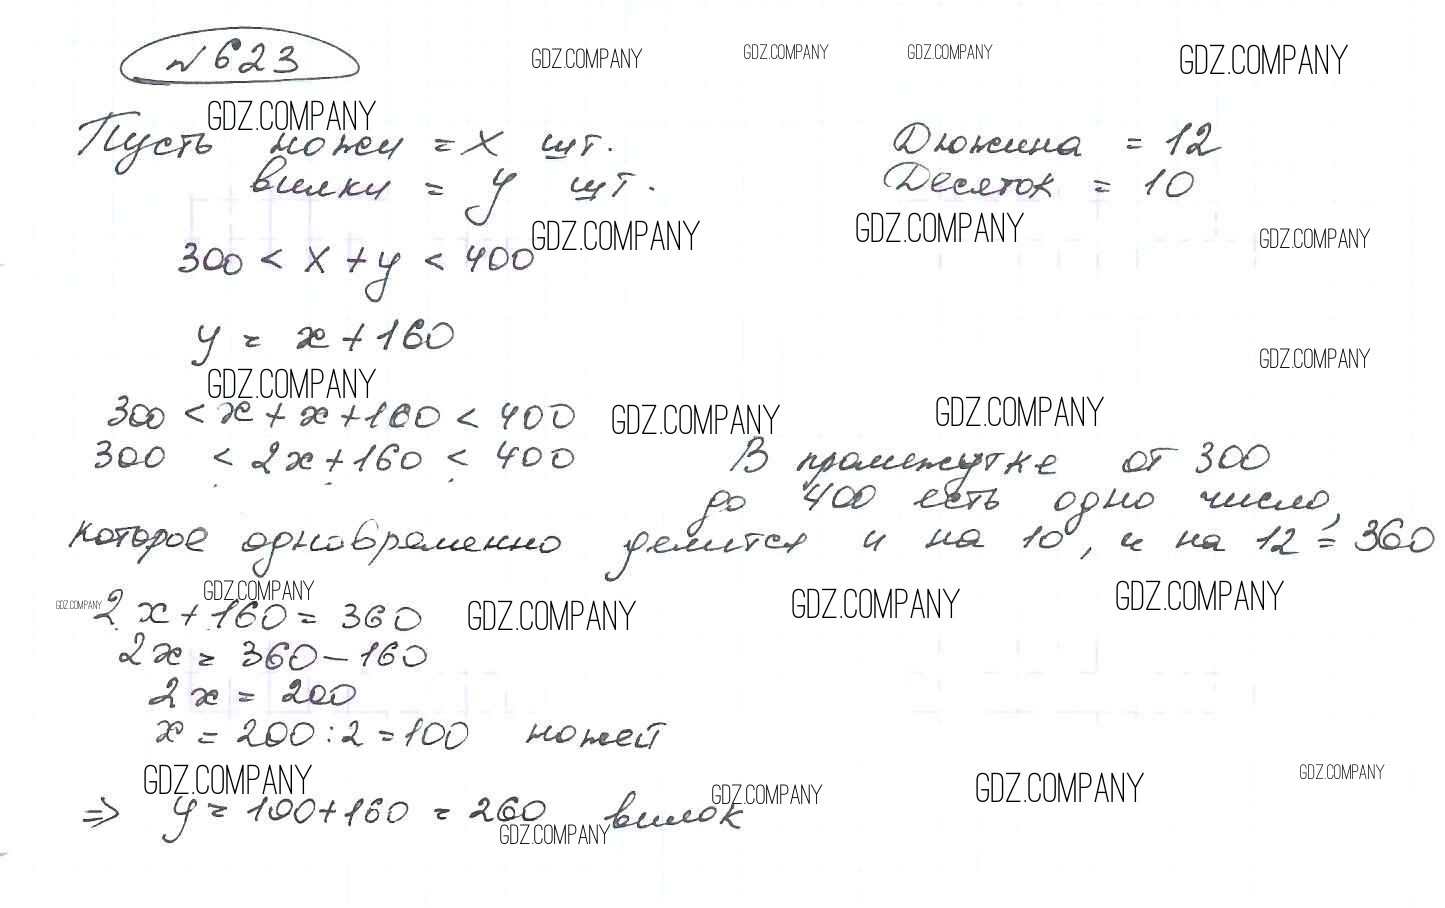 №623
GDZ.COMPANY GDZ.COMPANY GDZ.COMPANY GDZ.COMPANY
GDZ.COMPANY
Пусть ножи = x шт. Дюжина = 12
вилки = y шт. Десяток = 10
GDZ.COMPANY GDZ.COMPANY GDZ.COMPANY
300 < x + y < 400
y = x + 160
GDZ.COMPANY
GDZ.COMPANY
300 < x + x + 160 < 400
GDZ.COMPANY GDZ.COMPANY
300 < 2x + 160 < 400 В промежутке от 300
до 400 есть одно число,
которое одновременно делится и на 10, и на 12 = 360
GDZ.COMPANY GDZ.COMPANY GDZ.COMPANY GDZ.COMPANY GDZ.COMPANY
2x + 160 = 360
2x = 360 - 160
2x = 200
x = 200 : 2 = 100 ножей
GDZ.COMPANY GDZ.COMPANY GDZ.COMPANY GDZ.COMPANY
⇒ y = 100 + 160 = 260 вилок
GDZ.COMPANY